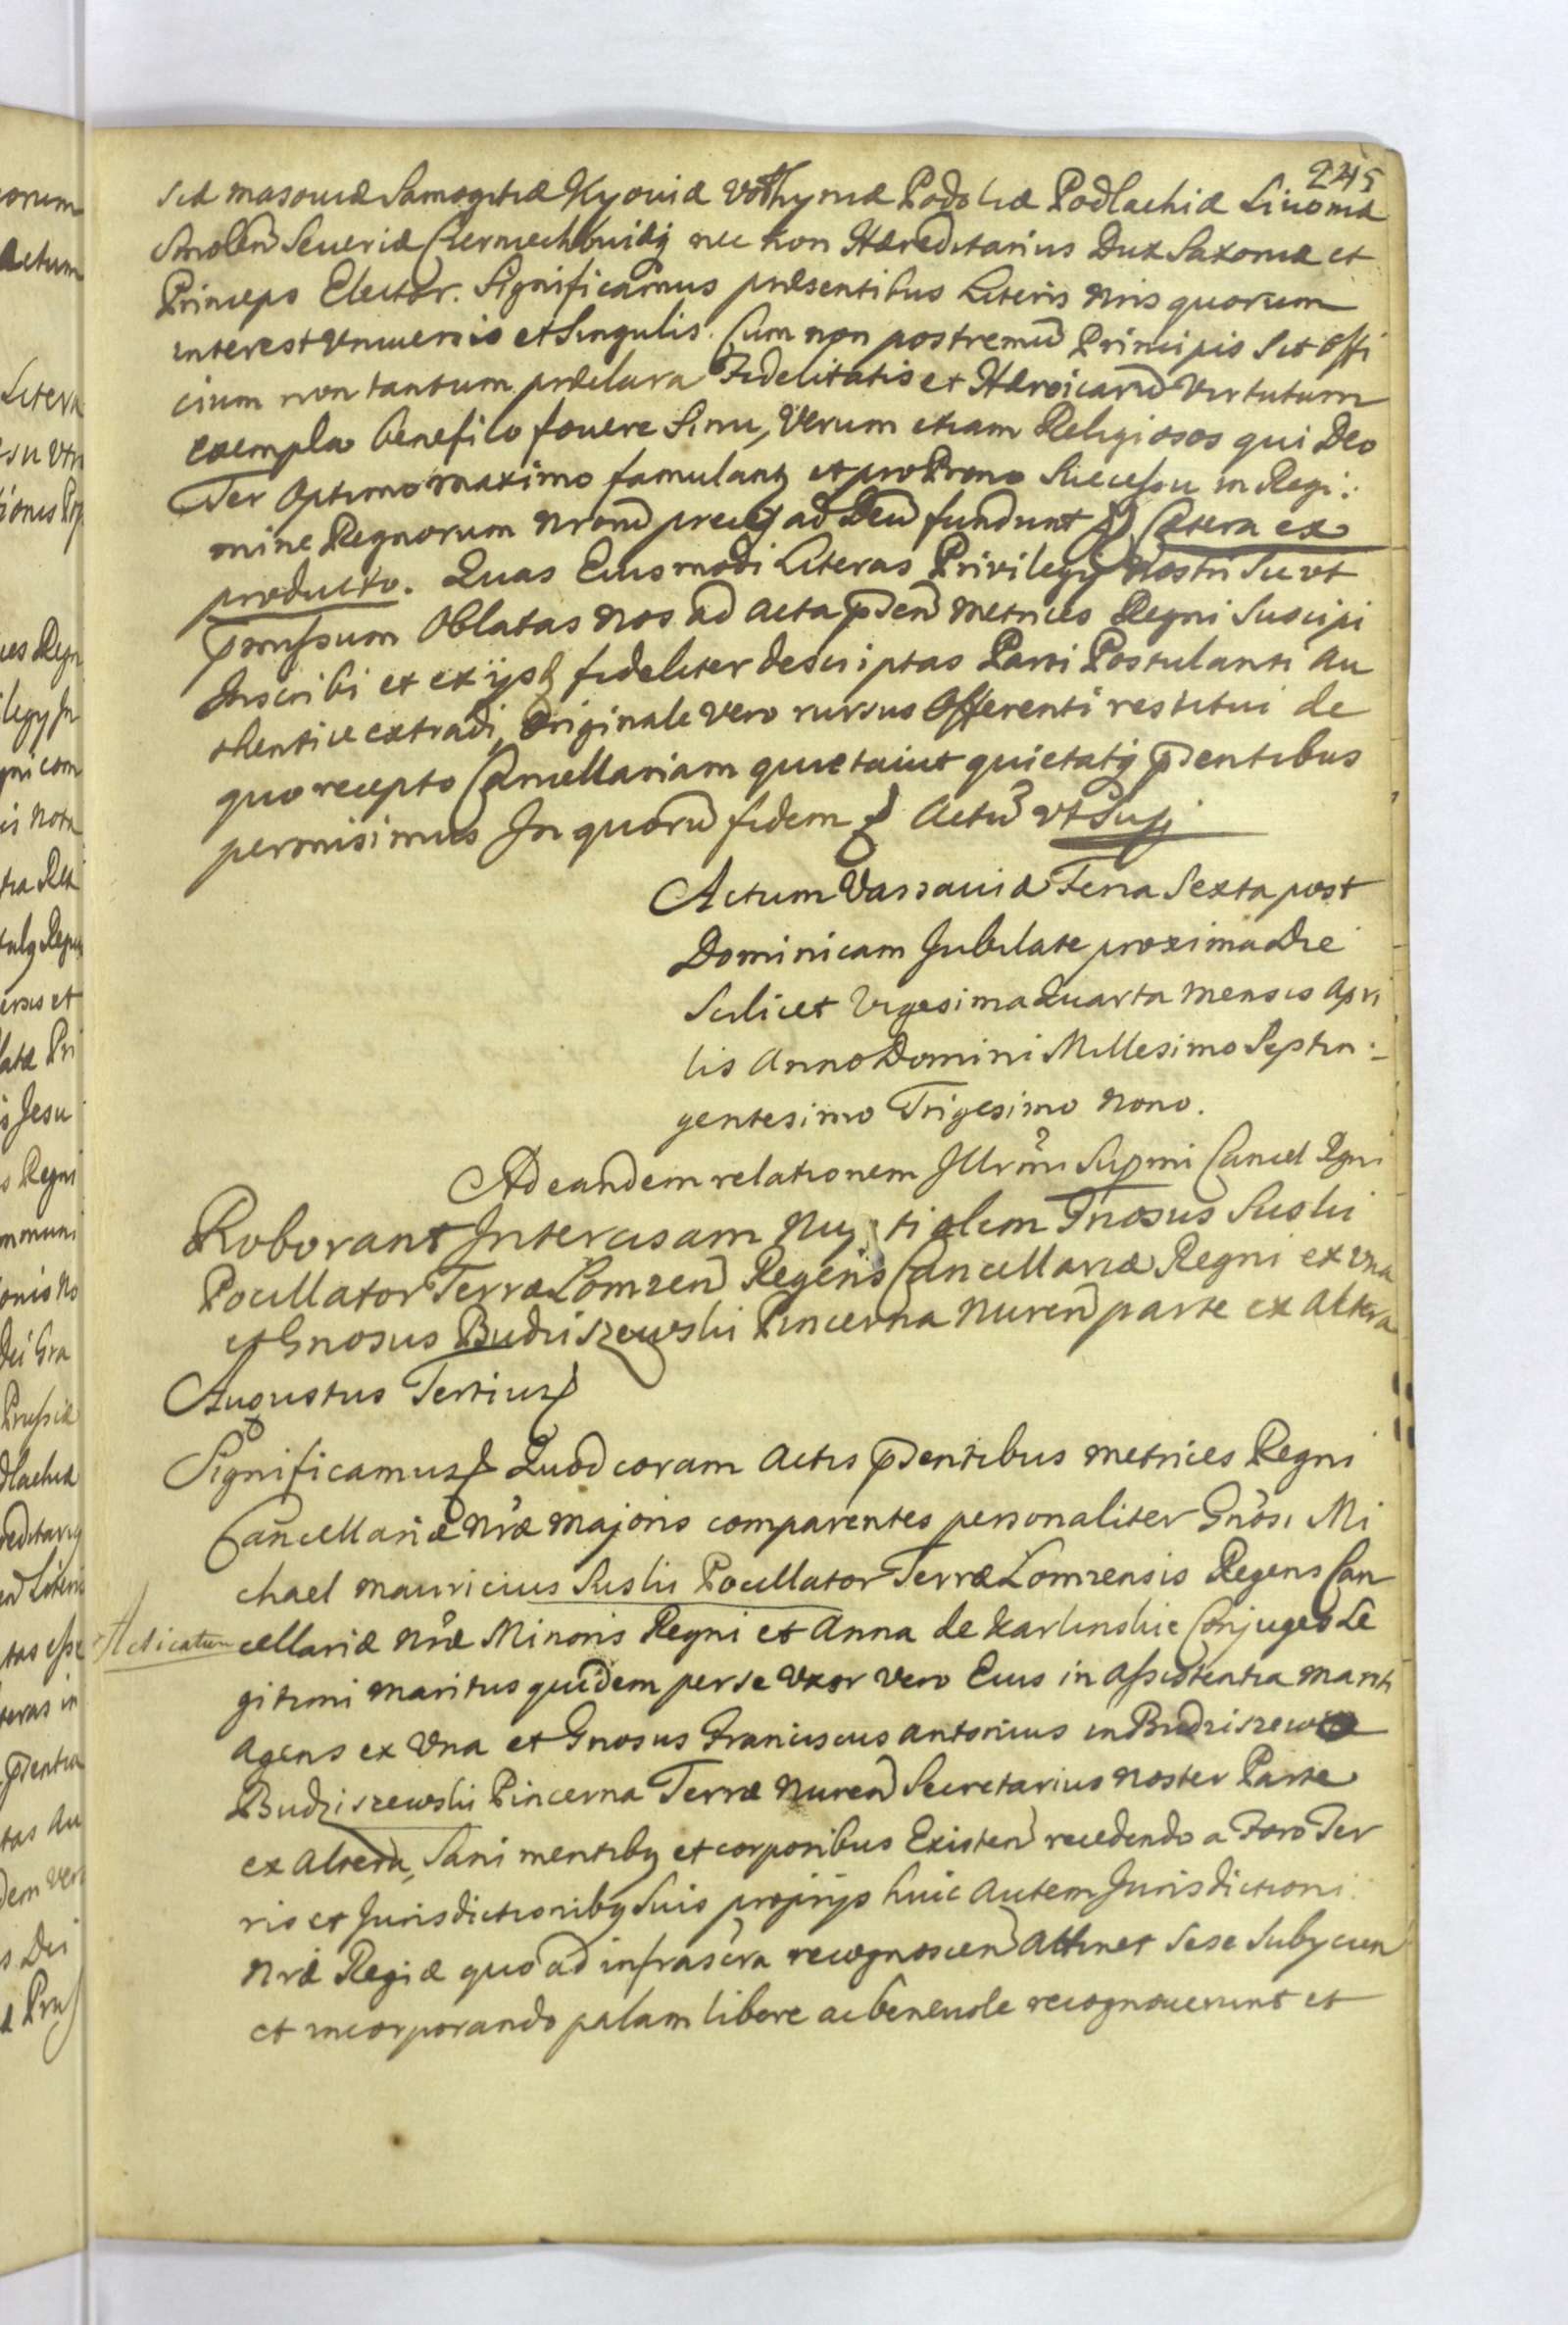 245
siæ Masoviæ Samogitiæ Kyoviæ Volhyniæ Podoliæ Podlachiæ Livoniæ
Smolen Severiæ Czerniechoviæq nec non Hæreditarius Dux Saxoniæ et
Princeps Elector. Significamus præsentibus Literis Nris quorum
interest Universis et Singulis. Cum non postremu Principis Sit Offi
cium non tantum præclara Fidelitatis et Heroicaru Virtutum
exempla benefico fovere Sinu, Verum etiam Religiosos qui Deo
Ter Optimo Maximo famulantq et pro Prono Successu in Regi:
mine Regnorum Nroru preces ad Deu fundunt Cætera ex
producto. Quas Eiusmodi Literas Privilegij Nostri Su ut
præmissum Oblatas Nos ad Acta pden Metrices Regni Suscipi
Inscribi et ex ijsd fideliter descriptas Parti Postulanti Au
thentice extradi, Originale vero rursus Offerenti restitui de
quo recepto Cancellariam quietavit quietatq pdentibus
permisimus In quoru fidem Actu ut Sup
Actum Varsaviæ Feria Sexta post
Dominicam Jubilate proxima die
Scilicet Vigesima Quarta Mensis Apri
lis Anno Domini Millesimo Septin:
gentesimo Trigesimo Nono.
Ad eandem relationem Illrmi Supmi Cancel Rgni
Roborant Intercisam Nuptialem Gnosus Suski
Pocillator Terræ Lomzen Regens Cancellariæ Regni ex una
et Gnosus Budziszewski Pincerna Nuren parte ex Altera
Augustus Tertius
Significamus Quod coram Actis pdentibus Metrices Regni
Cancellariæ Nræ Majoris comparentes personaliter Gnosi Mi
chael Mauricius Suski Pocillator Terræ Lomzensis Regens Can
Acticatum
cellariæ Nræ Minoris Regni et Anna de Karlinskie Conjuges Le
gitimi Maritus quidem per se Uxor vero Eius in Assistentia Mariti
Agens ex Una et Gnosus Franciscus Antonius in Budziszewo
Budziszewski Pincerna Terræ Nuren Secretarius Noster Parte
ex Altera, Sani mentibq et corporibus Existen recedendo a Foro Ter
ris et Jurisdictionibq Suis proprijs huic autem Jurisdictioni
Nræ Regiæ quoad infrascra recognoscen Attinet Sese Subijcien
et incorporando palam libere ac benevole recognoverunt et